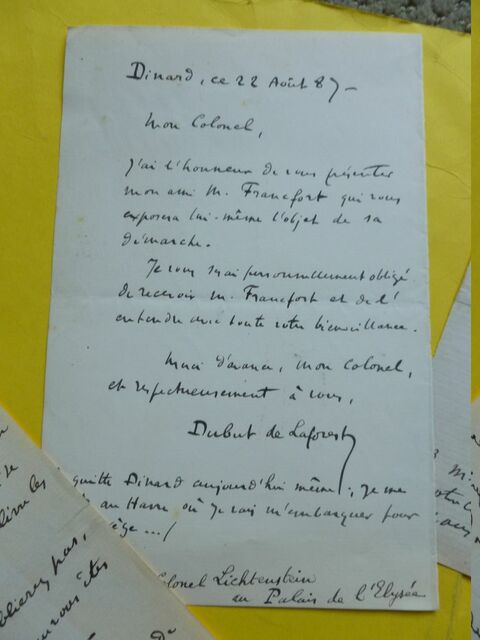 Dinard, ce 22 Août 87 -
Mon Colonel,
J'ai l'honneur de vous présenter
mon ami M. Francfort qui vous
exposera lui-même l'objet de sa
démarche.
Je vous serai personnellement obligé
de recevoir M. Francfort et de l'
entendre avec toute votre bienveillance.
Merci d'avance, mon Colonel,
et respectueusement à vous,
Dubut de Laforest
quitte Dinard aujourd'hui même; je me
au Havre où je vais m'embarquer pour
... /
Colonel Lichtenstein
au Palais de l'Elysée
pas,
vous êtes